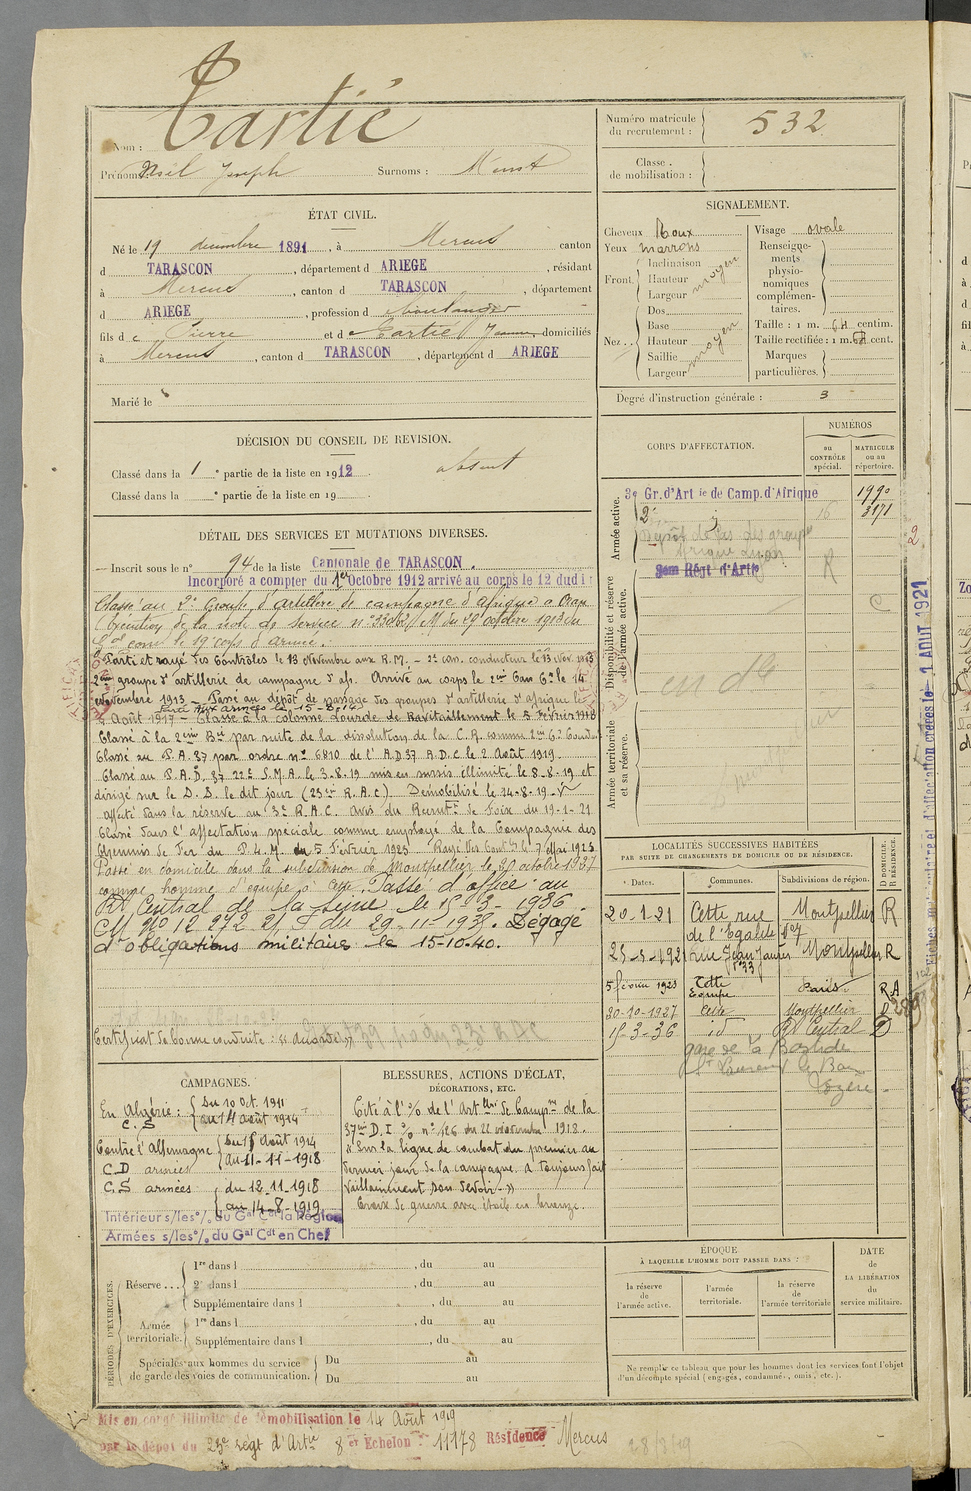 Nom : Cartié
Prénoms : Noël Joseph Surnoms :
Numéro matricule du recrutement : 532
Classe de mobilisation :
ÉTAT CIVIL.
Né le 19 décembre 1891, à Mercus canton
d TARASCON, département d ARIEGE, résidant
à Mercus, canton d TARASCON, département
d ARIEGE, profession d
fils de Pierre et de Cartié Jeanne domiciliés
à Mercus, canton d TARASCON, département d ARIEGE
Marié le
SIGNALEMENT.
Cheveux Roux
Yeux marrons
Front. Inclinaison Hauteur Largeur moyen
Nez. . Dos Base Hauteur Saillie Largeur moyen
Visage ovale
Renseignements physionomiques complémentaires.
Taille : 1 m. 64 centim.
Taille rectifiée : 1 m. 64 cent.
Marques particulières.
Degré d'instruction générale : 3
DÉCISION DU CONSEIL DE REVISION.
Classé dans la 1 e partie de la liste en 1912 absent
Classé dans la e partie de la liste en 19
CORPS D'AFFECTATION.
NUMÉROS
au CONTRÔLE spécial.
MATRICULE ou au répertoire.
Armée active.
3e Gr. d'Artie de Camp. d'Afrique 1990
2e 16 3171
Dépôt de pas des groupes
Afrique
Disponibilité et réserve de l'armée active.
Régt d'Artie R
Armée territoriale et sa réserve.
DÉTAIL DES SERVICES ET MUTATIONS DIVERSES.
Inscrit sous le n° 94 de la liste Cantonale de TARASCON.
Incorporé a compter du 1er Octobre 1912 arrivé au corps le 12 dudit
Classé au 2e Groupe d'artillerie de campagne d'afrique a Oran
Exécution de la note de service n° du 29 octobre 1913 du
Gal comt le 19e corps d'armée.
Parti et rayé des contrôles le 13 Novembre aux R.M. – 2e can. conducteur le 13 Nov. 1913
2ème groupe d'artillerie de campagne d'af. Arrivé au corps le 14
Novembre 1913 – Passé au dépôt de passage des groupes d'artillerie d'afrique le
Parti aux armées le 15-8-14
Août 1917 – Classé à la colonne Lourde de Ravitaillement le 5 Février 1918
Classé à la 2ème Bie par suite de la dissolution de la C.R. comme 2me Cr Condr
Classé au P.A. 37 par ordre n° 6810 de l'A.D 37 A.D.C. le 2 Août 1919.
Classé au P.A.D. 37 22e S.M.A. le 3-8-19 mis en sursis illimité le 8-8-19 et
dirigé sur le D.D. le dit jour (23e R.A.C). Démobilisé le 24-8-19
affecté dans la réserve au 3e R.A.C. Avis du Recrutt de Foix du 19-1-21
Classé dans l'affectation spéciale comme employé de la Compagnie des
Chemins de Fer du P.L.M. du 5 Février 1923 Rayé des Contles le 7 Mai 1923
Passé en domicile dans la subdivision de Montpellier le 30 octobre 1927
comme homme d'équipe à Cette. Passé d'office au
Rt Central de la Seine le 15-3-1936
CM N° 12.972 21 F du 29-11-1939. Dégagé
d'obligations militaires le 15-10-40.
Certificat de bonne conduite : "accordé"
LOCALITÉS SUCCESSIVES HABITÉES
PAR SUITE DE CHANGEMENTS DE DOMICILE OU DE RÉSIDENCE.
Dates. Communes. Subdivisions de région. D DOMICILE. R RÉSIDENCE.
20-1-21 Cette rue de l'Egalité Montpellier R
rue Jean Jaurès n° 33 Montpellier R
5 février 1923 Cette Paris R A
30-10-1927 Cette Montpellier D
15-3-36 id Rt Central D
gare de la Bastide
St Laurent les Bains
Lozère
Fiches matriculaire et d'affectation créées le 1 AOUT 1921
CAMPAGNES.
En Algérie : du 10 Oct. 1911
C.S au 14 août 1914
Contre l'Allemagne du 15 Août 1914
C.D armées au 11-11-1918
C.S armées du 12-11-1918
au 14-8-1919
Intérieur s/les °/. du Gal Cdt la Région
Armées s/les °/. du Gal Cdt en Chef
BLESSURES, ACTIONS D'ÉCLAT,
DÉCORATIONS, ETC.
Cité à l'% de l'Artllrie de Campne de la
37me D.I. % n° 126 du 22 novembre 1918.
"Sur la ligne de combat du premier au
dernier jour de la campagne, a toujours fait
vaillamment son devoir."
Croix de guerre avec étoile en bronze.
PÉRIODES D'EXERCICES.
Réserve . . . 1re dans l , du au
2e dans l , du au
Supplémentaire dans l , du au
Armée territoriale. 1re dans l , du au
Supplémentaire dans l , du au
Spéciales aux hommes du service de garde des voies de communication. Du au
Du au
ÉPOQUE
À LAQUELLE L'HOMME DOIT PASSER DANS :
la réserve de l'armée active.
l'armée territoriale.
la réserve de l'armée territoriale
DATE de LA LIBÉRATION du service militaire.
Ne remplir ce tableau que pour les hommes dont les services font l'objet
d'un décompte spécial (engagés, condamnés, omis, etc.).
Mis en congé illimité de démobilisation le 14 Août 1919
par le dépôt du 23e régt d'Artie 8 er Echelon n° 11178 Résidence Mercus